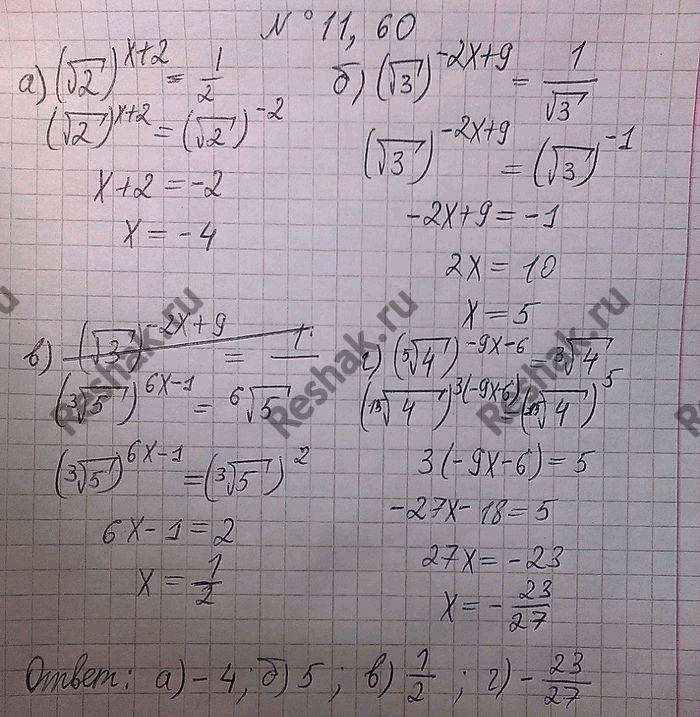 № 11, 60
а) (√2)^(x+2) = 1/2
(√2)^(x+2) = (√2)^(-2)
x+2 = -2
x = -4
б) (√3)^(-2x+9) = 1/√3
(√3)^(-2x+9) = (√3)^(-1)
-2x+9 = -1
2x = 10
x = 5
в) (√3)^(-2x+9) = 1
(³√5)^(6x-1) = ⁶√5
(³√5)^(6x-1) = (³√5)^2
6x-1 = 2
x = 1/2
г) (⁵√4)^(-9x-6) = ³√4
(¹⁵√4)^(3(-9x-6)) = (¹⁵√4)^5
3(-9x-6) = 5
-27x-18 = 5
27x = -23
x = -23/27
Ответ: а) -4; б) 5; в) 1/2; г) -23/27
Reshak.ru
Reshak.ru
Reshak.ru
ru